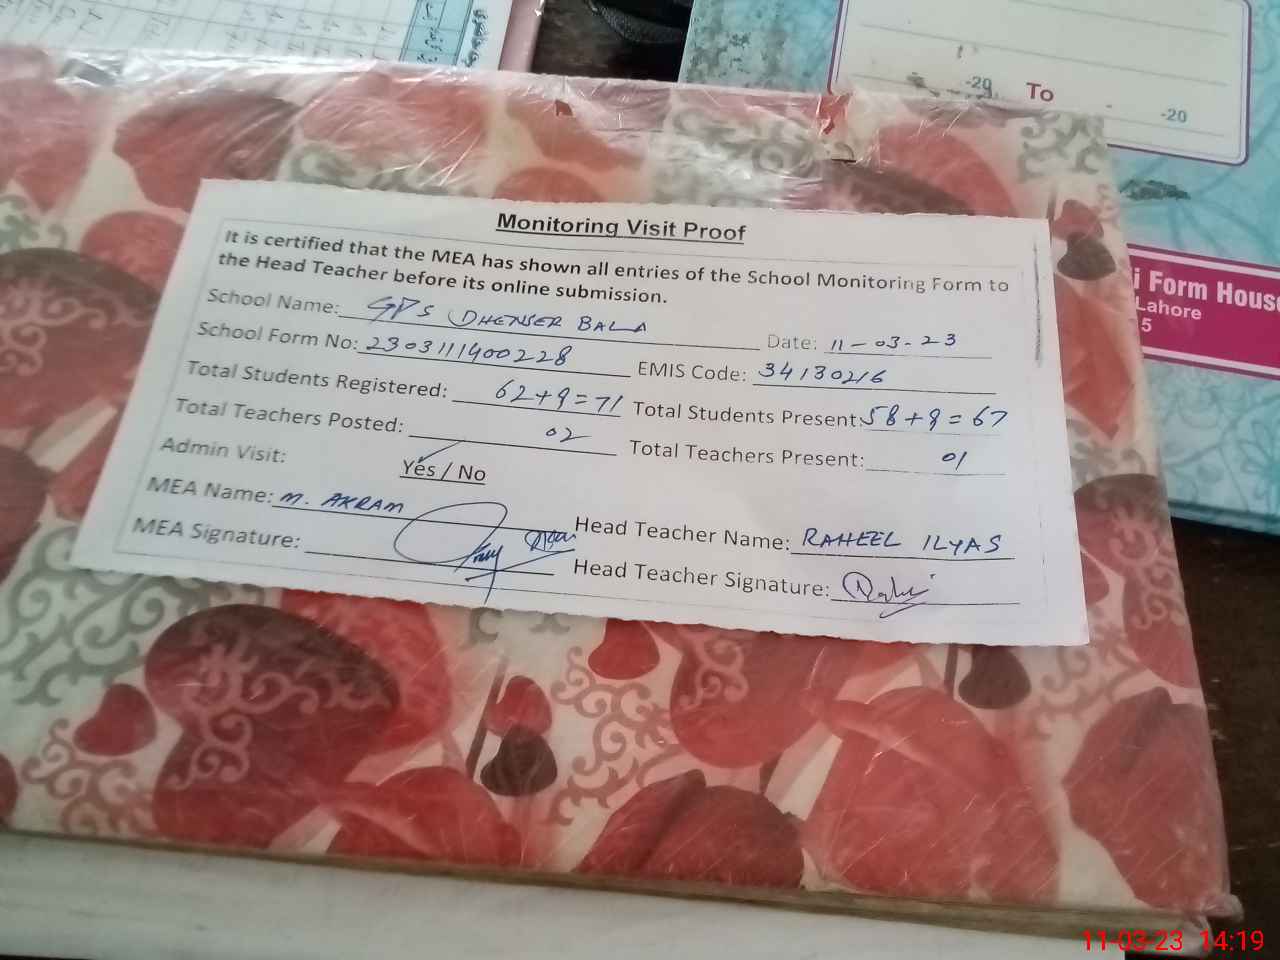 -20 To -20
Monitoring Visit Proof
It is certified that the MEA has shown all entries of the School Monitoring Form to
the Head Teacher before its online submission.
School Name: GPS DHENSER BALA Date: 11-03-23
School Form No: 2303111400228 EMIS Code: 34130216
Total Students Registered: 62+9=71 Total Students Present: 58+9=67
Total Teachers Posted: 02 Total Teachers Present: 01
Admin Visit: Yes / No
MEA Name: M. AKRAM Head Teacher Name: RAHEEL ILYAS
MEA Signature: Head Teacher Signature:
i Form House
Lahore
5
11-03-23 14:19